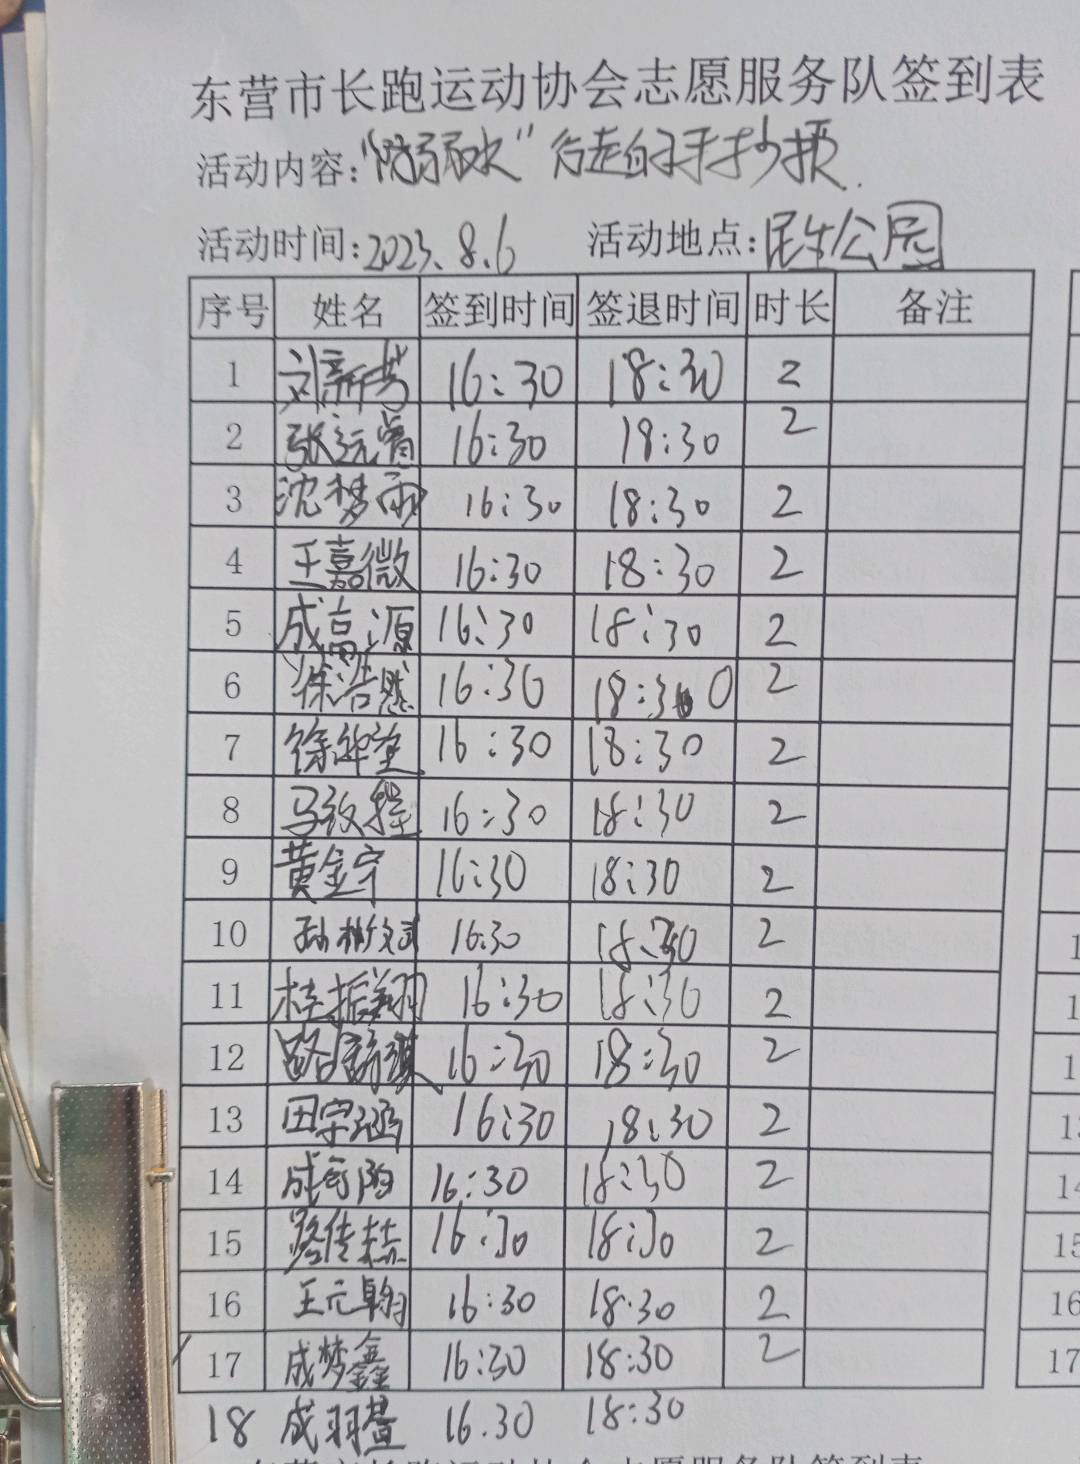 东营市长跑运动协会志愿服务队签到表
活动内容:“防溺水”行走的手抄报.
活动时间:2023.8.6 活动地点:民生公园
序号 姓名 签到时间 签退时间 时长 备注
1 刘新芳 16:30 18:30 2
2 张沅睿 16:30 18:30 2
3 沈梦雨 16:30 18:30 2
4 王嘉微 16:30 18:30 2
5 成富源 16:30 18:30 2
6 徐浩然 16:30 18:30 2
7 徐 16:30 18:30 2
8 马 16:30 18:30 2
9 黄金宇 16:30 18:30 2
10 孙彬斌 16:30 18:30 2
11 桂振翔 16:30 18:30 2
12 路 琪 16:30 18:30 2
13 田宇涵 16:30 18:30 2
14 成 16:30 18:30 2
15 路传 16:30 18:30 2
16 王元翰 16:30 18:30 2
17 成梦鑫 16:30 18:30 2
18 成羽萱 16.30 18:30
东营市长跑运动协会志愿服务队签到表
1
1
1
13
14
15
16
17